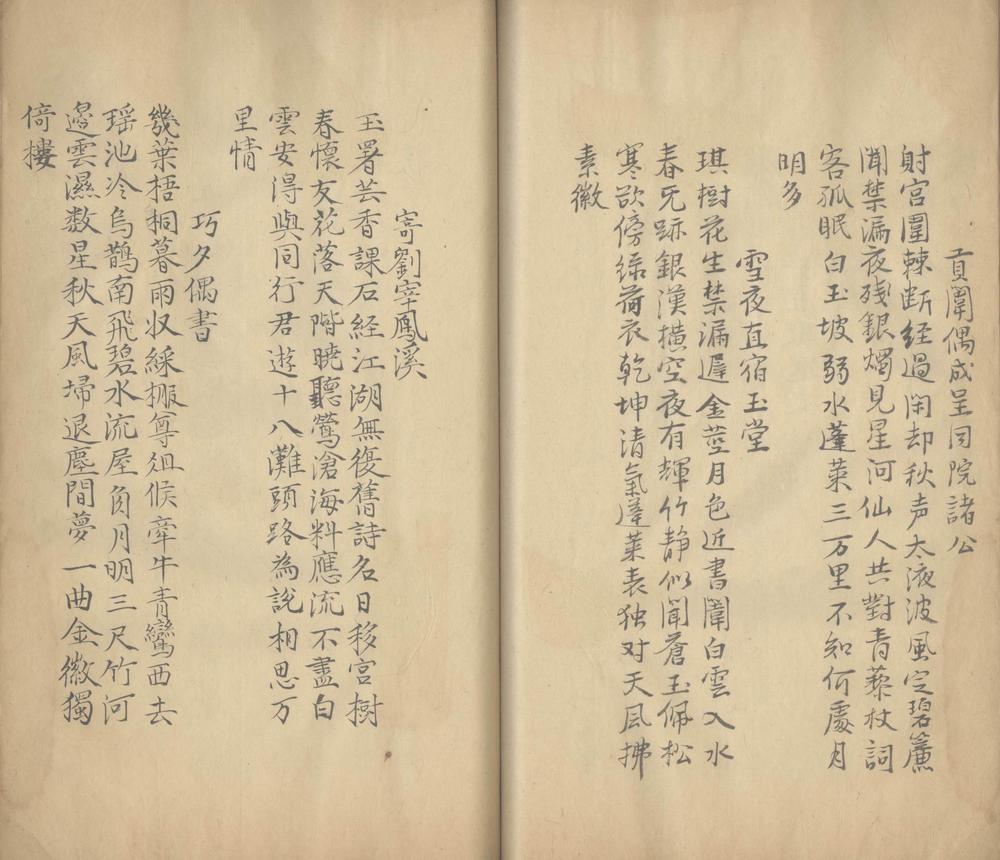 貢闈偶成呈同院諸公
射宮圍棘断経過閑却秋声太液波風定碧簾
聞禁漏夜残銀燭見星河仙人共對青藜杖詞
客孤眠白玉坡弱水蓬莱三万里不知何處月
明多
雪夜直宿玉堂
琪樹花生禁漏遲金莖月色近書闈白雲入水
春旡跡銀漢横空夜有輝竹静似聞蒼玉佩松
寒欲傍緑荷衣乾坤清氣蓬莱表独对天風拂
素徽
寄劉宰鳳溪
玉署芸香課石経江湖無復舊詩名日移宮樹
春懷友花落天階曉聽鶯滄海料應流不盡白
雲安得與同行君遊十八灘頭路為説相思万
里情
巧夕偶書
幾葉梧桐暮雨収綵搬尊俎候牽牛青鸞西去
瑶池冷烏鵲南飛碧水流屋角月明三尺竹河
邊雲濕数星秋天風埽退塵間夢一曲金徽獨
倚樓